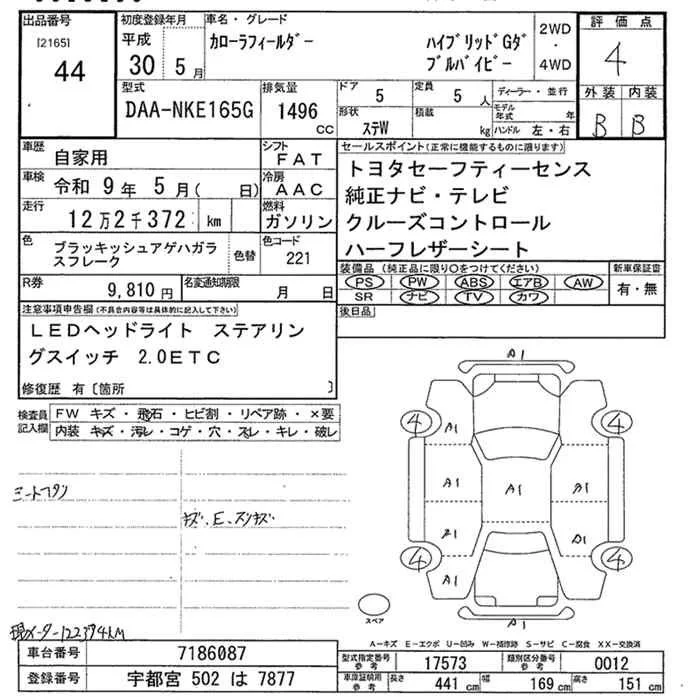 出品番号
[2165]
44
初度登録年月
平成
30 5月
車名・グレード
カローラフィールダー
ハイブリッドGダ
ブルバイビー
2WD
・
4WD
評価点
4
外装 内装
B B
型式
DAA-NKE165G
排気量
1496
CC
ドア
5
定員
5人
ディーラー・並行
モデル年式 年
形状
ステW
積載
kg
ハンドル 左・右
車歴
自家用
シフト
FAT
車検
令和 9年 5月( 日)
冷房
AAC
走行
12万2千372 km
燃料
ガソリン
色
ブラッキッシュアゲハガラ
スフレーク
色替
色コード
221
R券
9,810円
名変通知期限
月 日
セールスポイント(正常に機能するものに限ります)
トヨタセーフティーセンス
純正ナビ・テレビ
クルーズコントロール
ハーフレザーシート
装備品(純正品に限り○をつけてください)
PS PW ABS エアB AW
SR ナビ TV カワ
新車保証書
有・無
後日品
注意事項申告欄(不具合内容等は具体的に記入して下さい)
LEDヘッドライト ステアリン
グスイッチ 2.0ETC
修復歴 有〔箇所 〕
検査員
記入欄
FW キズ・飛石・ヒビ割・リペア跡・×要
内装 キズ・汚レ・コゲ・穴・スレ・キレ・破レ
キズ、E、スリキズ
現メーター122394KM
A1
4 4
A1
A1 A1 A1
A1 A1
4 4
A1
A1
スペア
A-キズ E-エクボ U-凹ミ W-補修跡 S-サビ C-腐食 XX-交換済
車台番号
7186087
登録番号
宇都宮 502 は 7877
型式指定番号
参考
17573
類別区分番号
参考
0012
車庫証明用
参考
長さ
441 cm
幅
169 cm
高さ
151 cm